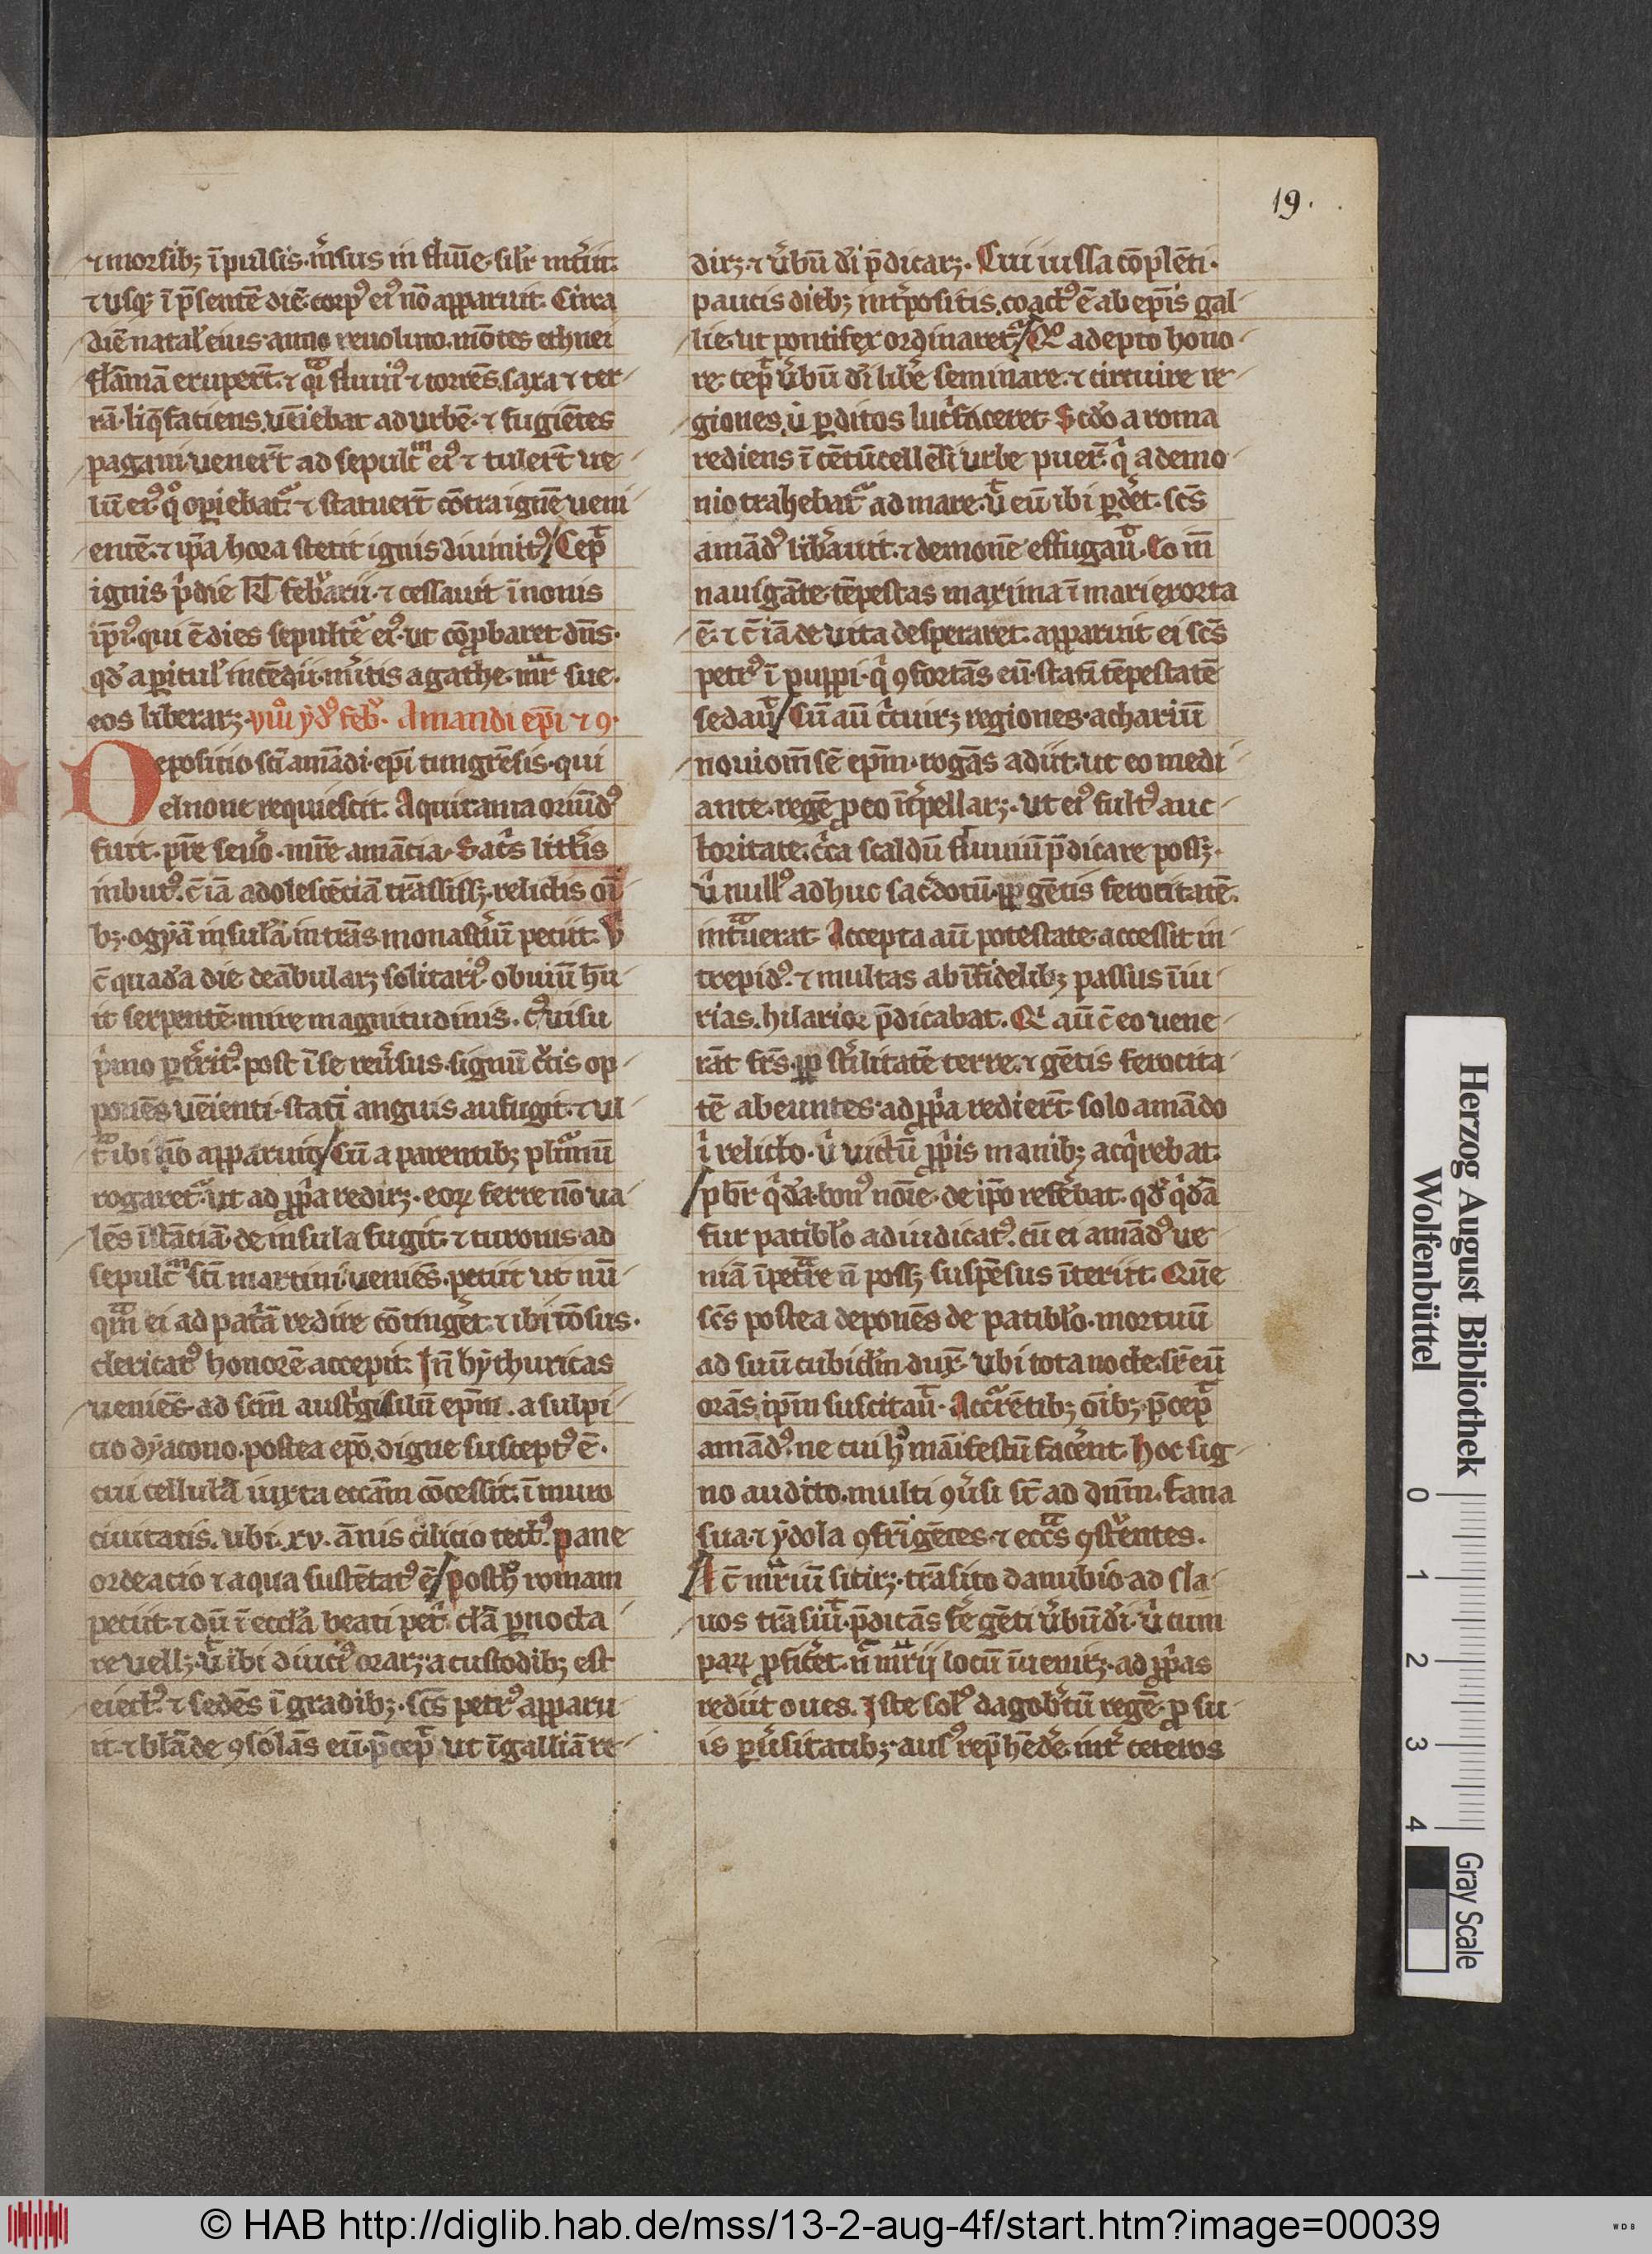 19.
⁊ morsibꝫ īpulsis. m̄sus in flum̄e. silr̄ int̄iit.
⁊ usqꝫ ī p̄sentē diē. corpꝰ eiꝰ nō apparuit. Circa
diē natal̄ eius. anno reuoluto. mōtes ethnei
flāmā eruper̄t. ⁊ qͣi fluuiꝰ ⁊ torrēs. saxa ⁊ ter-
rā. liq̄faciens. uēiebat ad urbē. ⁊ fugiētes
pagani. uener̄t ad sepulcͬm eiꝰ ⁊ tuler̄t ue-
lū eiꝰ qͦ opiebat᷑. ⁊ statuer̄t cōtra ignē ueni-
entē. ⁊ ip̄a hora stetit ignis diuinitꝰ. Cep̄
ignis p̄die kl̄ feb̄arii. ⁊ cessauit ī nonis
ip̄iꝰ. qui ē dies sepult̄e eiꝰ. ut cōp̄baret dn̄s.
qd̄ a picul̄ incēdii. m̄itis agathe. mr̄ sue.
eos liberarꝫ. viii yd̓ꝰ feb̄. Amandi ep̄i ⁊ ꝯ.
Depositio sc̄i amādi. ep̄i tungrēsis. qui
elnone requiescit. Aquitania oriūdꝰ
fuit. pr̄e seuͦo. mr̄e amācia. Sac̄s litt̄is
inbutꝰ. c̄ iā adolescētiā trāssissꝫ. relictis oī-
bꝫ. ogyā insul̄ā intrās monast̄iū petiit. V
c̄ quadā die deābularꝫ solitariꝰ. obuiū hu-
it serpentē. mire magnitudinis. cꝰ uisu
p̄mo pt̄ritꝰ. post ī se reūsus. signū c̄cis op-
ponēs uēienti. statī anguis aufugit. ⁊ ul-
tͣ ibi nō apparuit. Cū a parentibꝫ plimū
rogaret᷑. ut ad pp̄a redirꝫ. eoꝝ ferre nō ua-
lēs īstātiā. de insula fugit. ⁊ turonis ad
sepulcͬm sc̄i martini. ueniēs. petiit ut nū-
qͣm ei ad pat̄ā redire cōtinḡet. ⁊ ibi tōsus.
clericatꝰ honorē accepit. In̄ bythuricas
ueniēs. ad sc̄m aust̄gisilū ep̄m. a sulpi-
cio dyacono. postea ep̄o. digne susceptꝰ ē.
cui cellulā iuxta ecc̄am cōcessit. ī muro
ciuitatis. ubi .xv. ānis cilicio tectꝰ. pane
ordeacio ⁊ aqua sustētatꝰ ē. posth̄ romam
petiit. ⁊ dū ī eccl̄a beati pet̄i clā pnocta-
re uellꝫ. ū ibi diuciꝰ orarꝫ. a custodibꝫ est
eiectꝰ. ⁊ sedēs ī gradibꝫ. sc̄s petrꝰ apparu-
it. ⁊ blāde ꝯsolās eū. p̄cep̄ ut ī galliā re-
dirꝫ. ⁊ ūbū dī p̄dicarꝫ. Cui iussa cōplēti.
paucis diebꝫ int̄positis. coactꝰ ē ab ep̄is gal-
lie. ut pontifex ordinaret᷑. Qͦ adepto hono-
re. cep̄ ūbū dī lib̄e seminare. ⁊ circuire re-
giones. ū pditos luc̄faceret. Scd̄o a roma
rediens ī cētūcell̄ensi urbe puer̄. q̄ a demo-
nio trahebat᷑ ad mare. ū eū ibi pd̄et. sc̄s
amādꝰ lib̄auit. ⁊ demonē effugauͭ. Eo m̄
nauigāte. tēpestas maxima ī mari exorta
ē. ⁊ c̄ iā de uita desperaret. apparuit ei sc̄s
petrꝰ ī puppi. q̄ ꝯfortās eū. statī tēpestatē
sedauͭ. Cū aū c̄cuirꝫ regiones. acharium
nouiom̄sē ep̄m. rogās adiit. ut eo medi-
ante. regē p eo īt̄pellarꝫ. ut eiꝰ fultꝰ auc-
toritate. c̄ca scaldū fluuiū p̄dicare possꝫ.
ū nullꝰ adhuc sac̄dotū. pp gētis ferocitatē.
intͣuerat. Accepta aū potestate. accessit in-
trepidꝰ. ⁊ multas ab īfidelibꝫ passus īiu-
rias. hilarior p̄dicabat. Qi aū c̄ eo uene-
rāt fr̄s. pp st̄ilitatē terre. ⁊ gētis ferocita-
tē abeuntes. ad pp̄a redier̄t. solo amādo
ī relicto. ū uictū pp̄is manibꝫ acq̄rebat.
pbr̄ q̄dā. bonꝰ nōie. de ip̄o ref̄ebat. qd̄ q̄dā
fur patib̄lo adiudicatꝰ. cū ei amādꝰ ue-
niā īpetͣre n̄ possꝫ. suspēsus īteriit. Quē
sc̄s postea deponēs de patib̄lo. mortuū
ad suū cubicl̄m dux̄. Ubi tota nocte. sr̄ eū
orās. ip̄m suscitauͭ. Accr̄ētibꝫ oībꝫ. p̄cep̄
amādꝰ. ne cui hͦ māifestū fac̄ent. Hoc sig-
no audito. multi ꝯūsi sc̄ ad dn̄m. fana
sua. ⁊ ydola ꝯfrīgētes. ⁊ ecc̄as ꝯst̄entes.
Ac̄ mr̄iū sitirꝫ. trāsito danubio. ad sla-
uos trāsiuͭ. p̄dicās fē gēti ūbū dī. ū cum
paꝝ pfic̄et. n̄ mr̄ii locū īuenirꝫ. ad pp̄as
rediit oues. Iste solꝰ dagob̄tū regē. p su-
is pūsitatibꝫ. ausꝰ rep̄hēd̄e. int̄ ceteros
Herzog August Bibliothek
Wolfenbüttel
0 1 2 3 4
Gray Scale
© HAB http://diglib.hab.de/mss/13-2-aug-4f/start.htm?image=00039
WDB